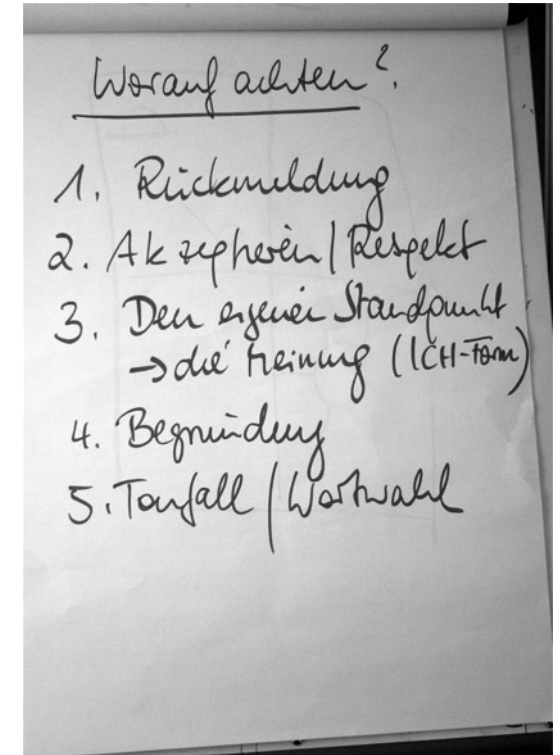 Worauf achten?
1. Rückmeldung
2. Akzeptieren / Respekt
3. Den eigenen Standpunkt
→ die Meinung (ICH-Form)
4. Begründung
5. Tonfall / Wortwahl